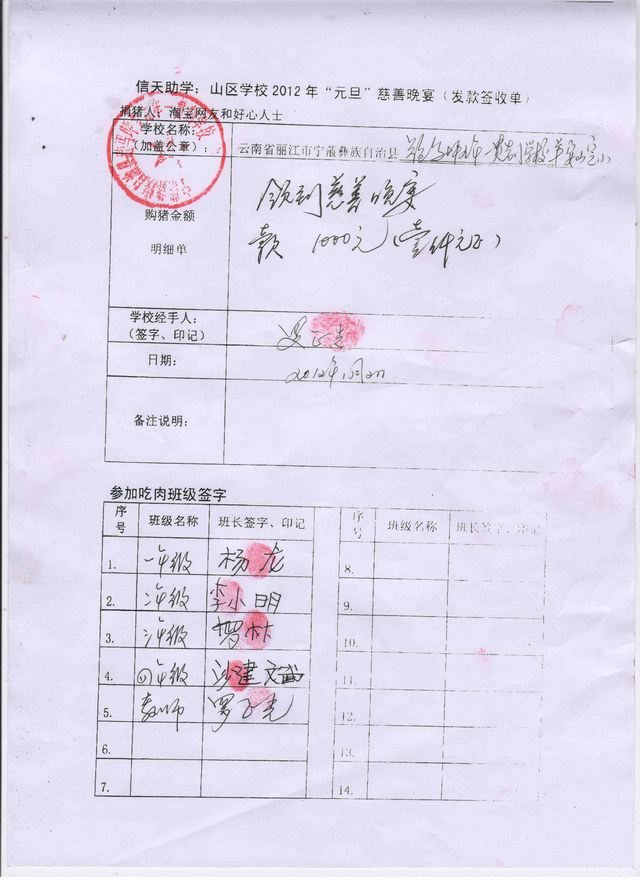 信天助学：山区学校2012年“元旦”慈善晚宴（发款签收单）
捐猪人：淘宝网友和好心人士
学校名称：
（加盖公章）：
云南省丽江市宁蒗彝族自治县
购猪金额
明细单
领到慈善晚宴
款 1000元（壹仟元正）
学校经手人：
（签字、印记）
日期：
2012年1月2日
备注说明：
参加吃肉班级签字
序号 班级名称 班长签字、印记 序号 班级名称 班长签字、印记
1. 一年级 杨龙 8.
2. 二年级 李小明 9.
3. 三年级 罗林 10.
4. 四年级 沙建文 11.
5. 教师 罗正光 12.
6. 13.
7. 14.